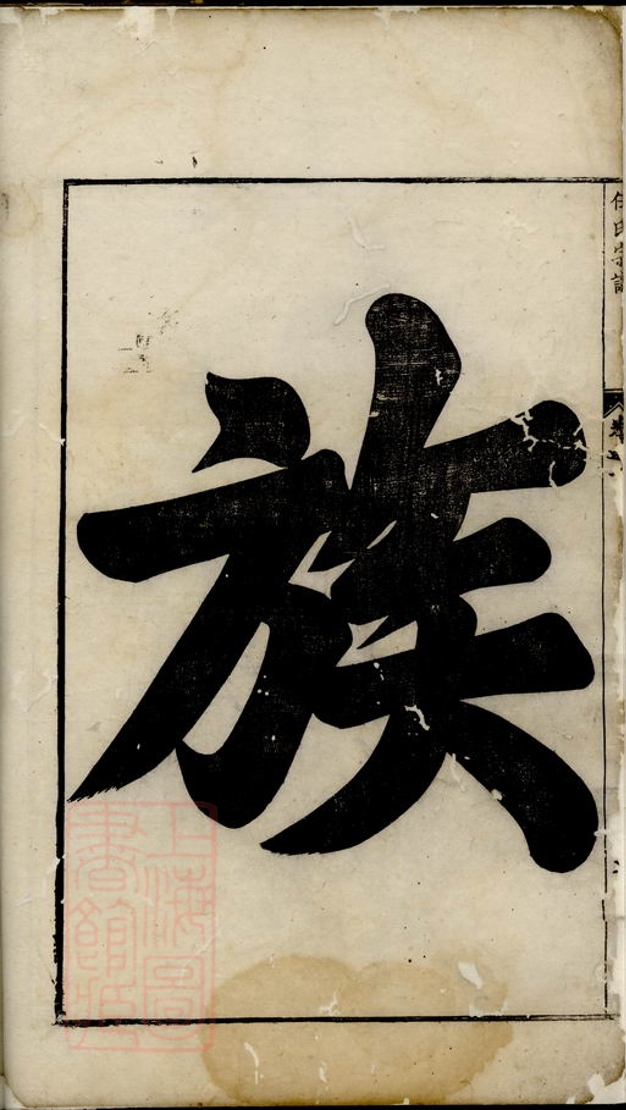 任氏宗譜
卷一
族
上海圖
書館藏